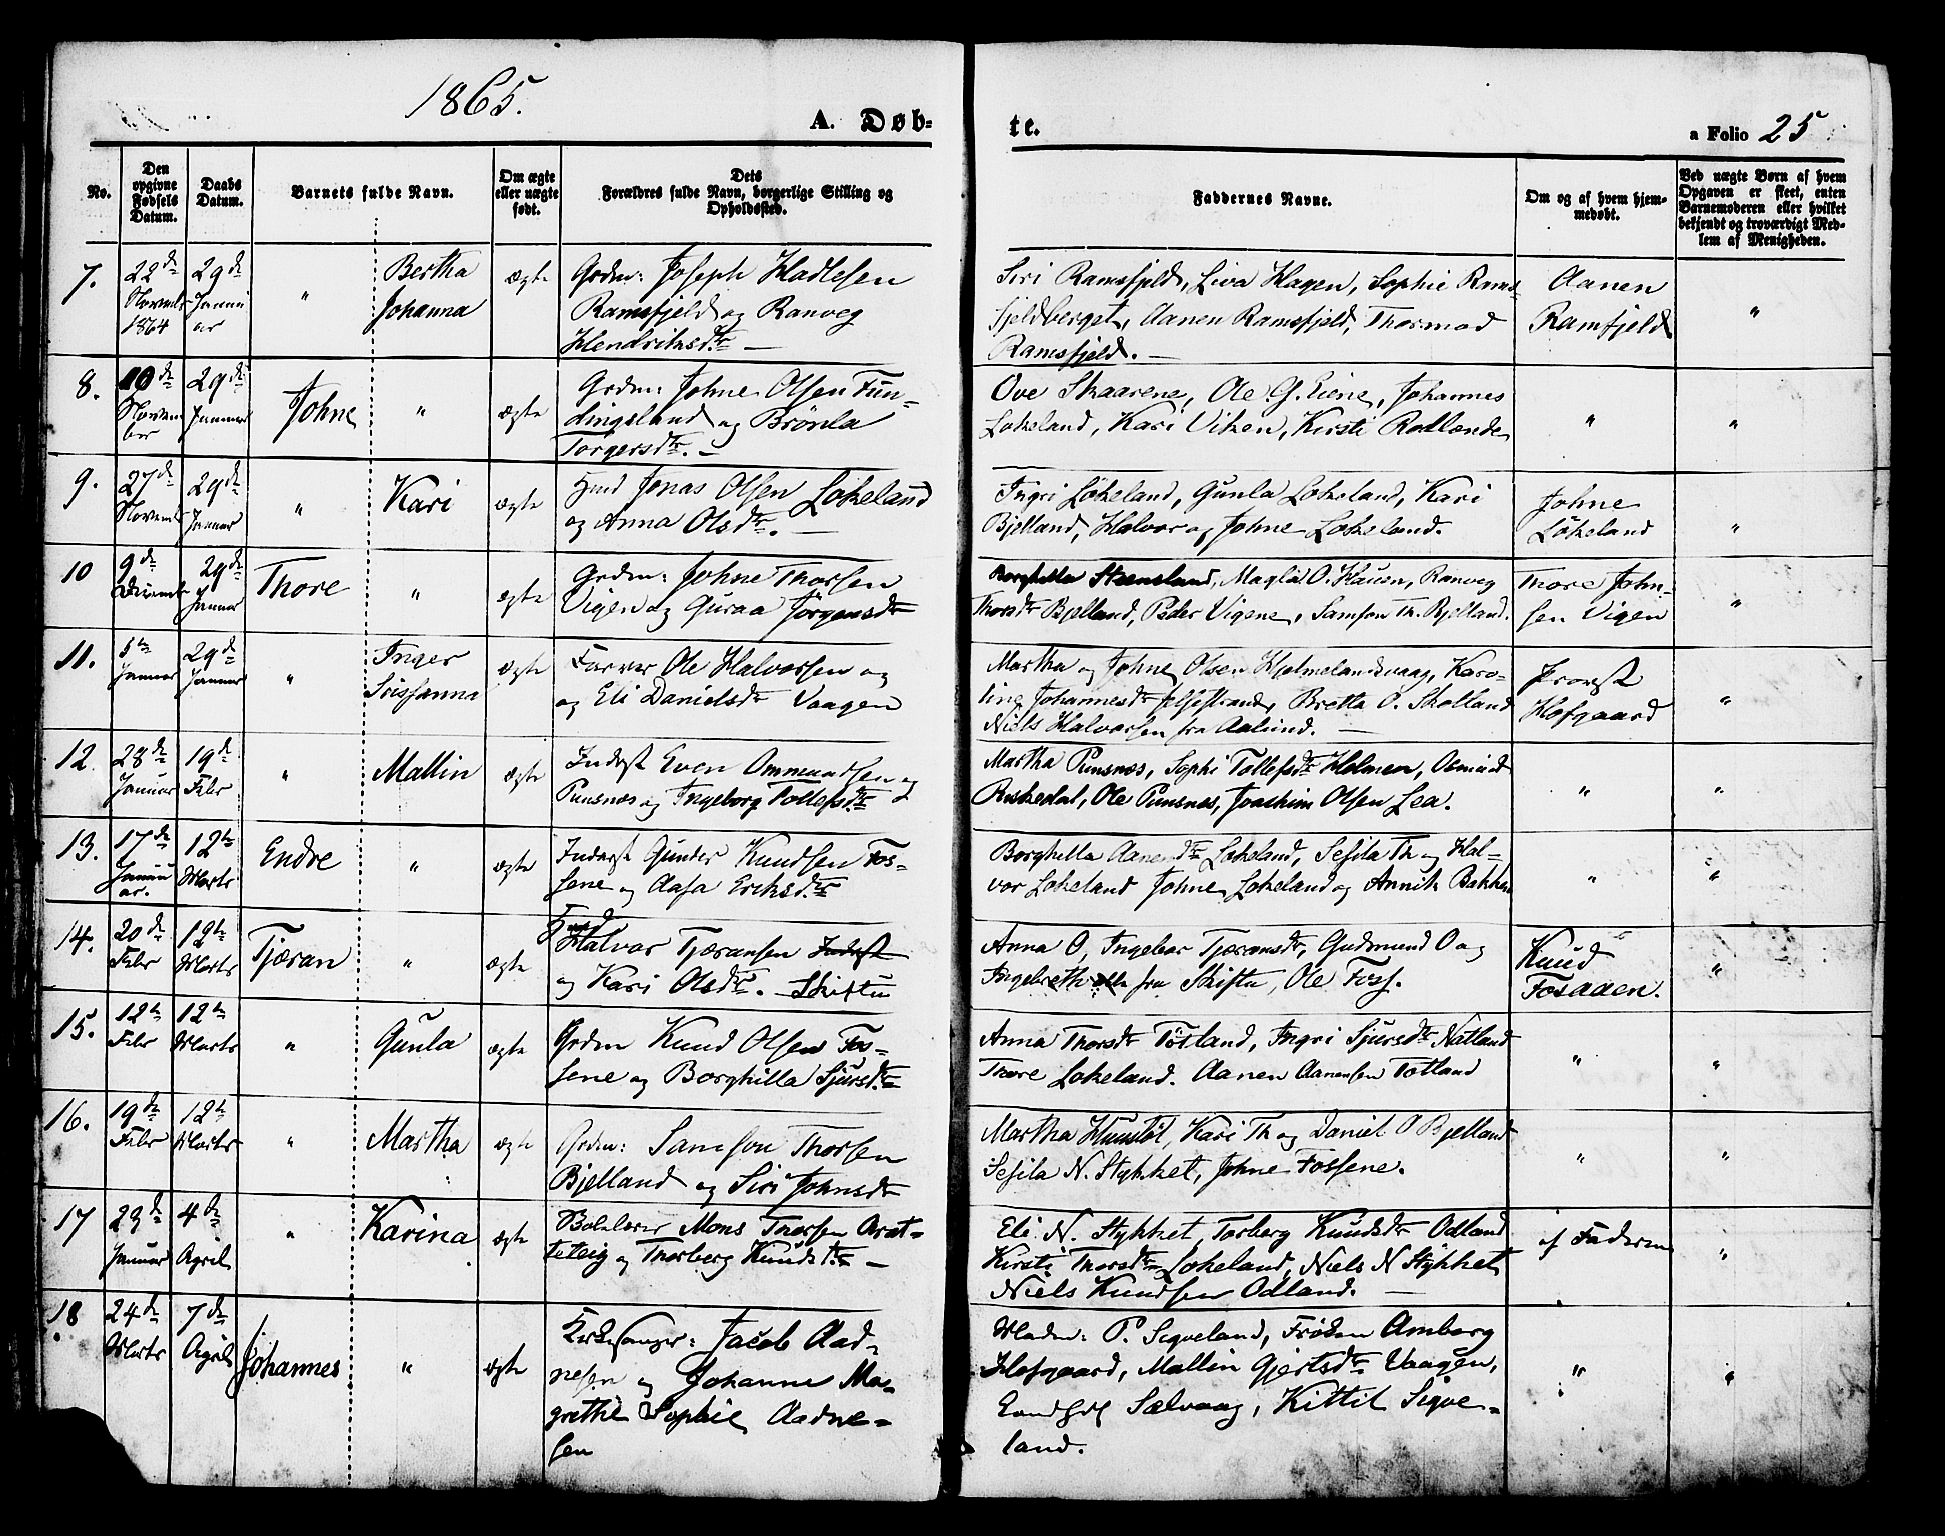 1865.
A. Døb-
te.
a Folio 25
No.
Den opgivne Fødsels Datum.
Daabs Datum.
Barnets fulde Navn.
Om ægte eller uægte født.
Dets Forældres fulde Navn, borgerlige Stilling og Opholdssted.
Faddernes Navne.
Om og af hvem hjemmedøbt.
Ved uægte Børn af hvem Opgaven er skeet, enten Barnemoderen eller hvilket bekjendt og troværdigt Medlem af Menigheden.
7. 22de Novembr 1864 29de Januar " Bertha Johanna ægte
Grdm: Joseph Hadlesen
Ramsfjeld og Ranveg
Hendriksdtr —
Siri Ramsfjeld, Liva Hagen, Sophie Rams-
fjeldberget, Aanen Ramsfjeld, Thormod
Ramsfjeld. —
Aanen
Ramfjeld
"
8. 10de Novembr 29de Januar Johne " ægte
Grdm: Johne Olsen Fun-
dingsland og Brönla
Torgersdtr. —
Ove Skaarene, Ole G. Eiene, Johannes
Lökeland, Kari Viken, Kirsti Rødlænde
"
"
9. 27de Novembr 29de Januar " Kari ægte
Hmd Jonas Olsen Lökeland
og Anna Olsdtr. —
Ingri Lökeland, Gunla Lökeland, Kari
Bjelland, Halvor og Johne Lökeland.
Johne
Lökeland
"
10 9de Decembr 29de Januar Thore " ægte
Grdm: Johne Thorsen
Vigen og Guraa Jörgensdtr
Borghilla Steensland, Magla O. Hauen, Ranveg
Thorsdtr Bjelland, Peder Vigene, Samson Th. Bjelland.
Thore John-
sen Vigen
"
11. 5te Januar 29de Januar " Inger Sossanna ægte
Farver Ole Halvorsen og
og Eli Danielsdtr Vaagen
Martha og Johne Olsen Hjelmelandsvaag, Karo-
line Johannesdtr Jelsestrand, Bretta O. Skolland
Niels Halvorsen fra Aalund. —
Provst
Hofgaard
"
12. 28de Januar 19de Febr " Mallin ægte
Inderst Even Ommundsen og
Punsnæs og Ingeborg Tollefsdtr
Martha Punsnæs, Sophi Tollefsdtr Holmen, Osmund
Riskedal, Ole Punsnæs, Joachim Olsen Lea.
"
"
13. 17de Januar. 12te Marts Endre " ægte
Inderst Gunder Knudsen Fos-
sene og Aasa Eriksdtr
Borghilla Aanendtr Lökeland, Sesila Th og Hal-
vor Lökeland Johne Lökeland og Annik Bakken
"
"
14. 20de Febr 12te Marts Tjæran " ægte
Hmd
Halvor Tjæransen Inderst
og Kari Olsdtr. Skiftu
Anna O, Ingebor Tjæransdtr, Gudmund O og
Ingebreth alle fra Skiftu, Ole Foss.
Knud
Fosaaen.
"
15. 12te Febr 12te Marts " Gunla ægte
Grdm Knud Olsen Fos-
sene og Borghilla Sjursdtr
Anna Thorsdtr Tötland, Ingri Sjursdtr Nätland
Thore Lökeland. Aanen Aanensen Tötland
"
"
16. 19de Febr 12te Marts " Martha ægte
Grdm: Samson Thorsen
Bjelland og Siri Johnsdtr
Martha Hunstöl, Kari Th og Daniel O Bjelland
Sesila N. Stykket, Johne Fossene.
"
"
17 23de Januar 4de April " Karina ægte
Mons Thorsen Arat-
teteig og Thorberg Knudsdtr —
Eli N. Stykket, Torberg Knudsdtr Odland
Kirsti Thorsdtr Lökeland, Niels N Stykket
Niels Knudsen Odland. —
af Faderen
"
18. 24de Marts 7de April Johannes " ægte
Kirkesanger: Jacob Aad-
nesen og Johanne Mar-
grethe Sophie Aadne-
sen
Madm: P. Sigveland, Fröken Amberg
Hofgaard, Mallin Gjertsdtr Vaagen,
Sælvaag, Kittil Sigve-
land.
"
"